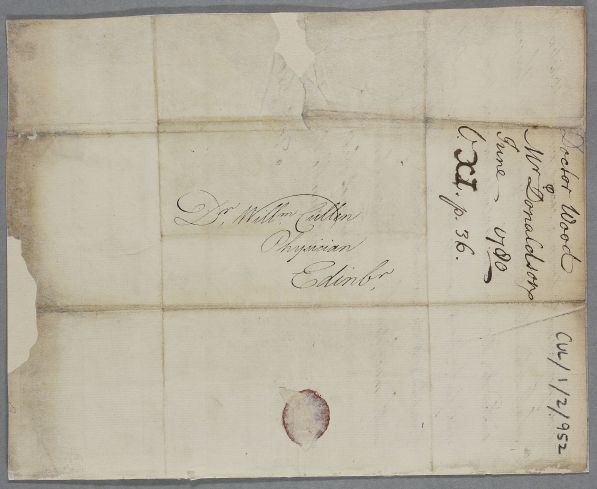 Dr. Willm Cullen
Physician
Edinbr.
Doctor Wood
Mr Donaldson
June 1780
V. XI. p. 36.
CUL/1/2/952